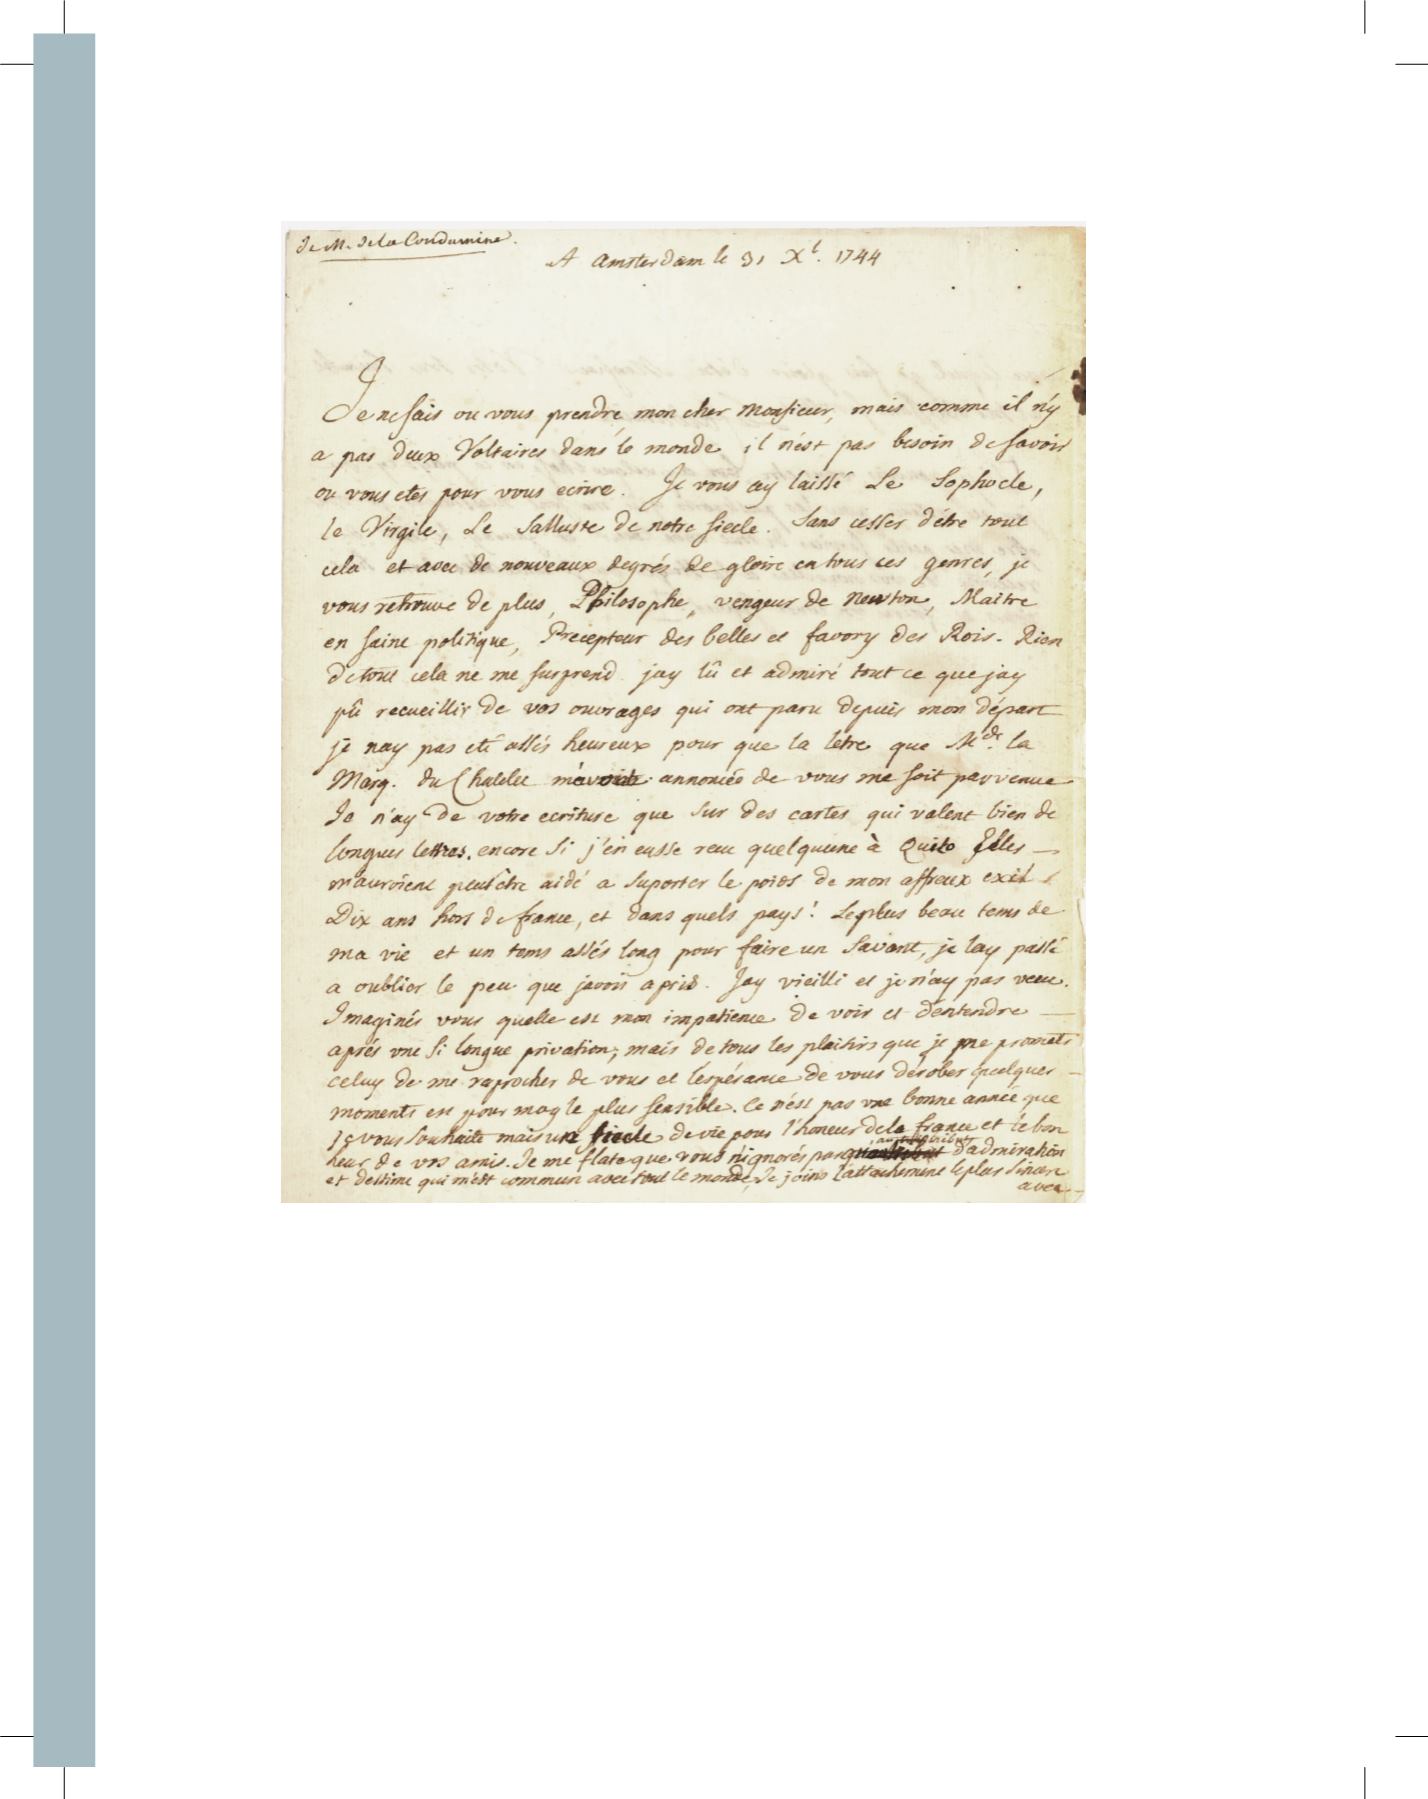 de M. de la Condamine.
A amsterdam le 31 Xb. 1744
Je ne sais ou vous prendre, mon cher Monsieur, mais comme il n'y
a pas deux Voltaires dans le monde il n'est pas besoin de savoir
ou vous etes pour vous ecrire. Je vous ay laissé Le Sophocle,
le Virgile, Le Salluste de notre siecle. Sans cesser d'être tout
cela et avec de nouveaux degrés de gloire en tous ces genres, je
vous retrouve de plus, Philosophe, vengeur de Newton, Maitre
en saine politique, Precepteur des belles et favory des Rois. Rien
de tout cela ne me surprend. jay lû et admiré tout ce que jay
pû recueillir de vos ouvrages qui ont paru depuis mon départ
je nay pas eté assés heureux pour que la letre que Mde. la
Marq. du Chatelet m'avoit annoncée de vous me soit parvenue
Je n'ay de votre ecriture que sur des cartes qui valent bien de
longues lettres. encore si j'en eusse receu quelquune à Quito Elles
m'auroient peutêtre aidé a suporter le poids de mon affreux exil
Dix ans hors de france, et dans quels pays! Le plus beau tems de
ma vie et un tems assés long pour faire un Savant, je lay passé
a oublier le peu que javois apris. Jay vieilli et je n'ay pas vecu.
Imaginés vous quelle est mon impatience de voir et d'entendre
aprés une si longue privation; mais de tous les plaisirs que je me promets
celuy de me raprocher de vous et l'espérance de vous dérober quelques
moments est pour moy le plus sensible. Ce n'est pas une bonne année que
Je vous souhaite mais un siecle de vie pour l'honeur de la france et le bon
heur de vos amis. Je me flate que vous n'ignorés pas qu'au tribut d'admiration
et destime qui m'est commun avec tout le monde, Je joins l'attachement le plus sincere
avec